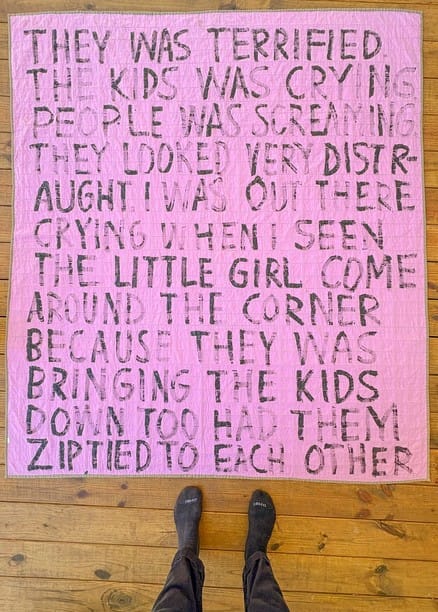 THEY WAS TERRIFIED.
THE KIDS WAS CRYING
PEOPLE WAS SCREAMING.
THEY LOOKED VERY DISTR-
AUGHT. I WAS OUT THERE
CRYING WHEN I SEEN
THE LITTLE GIRL COME
AROUND THE CORNER
BECAUSE THEY WAS
BRINGING THE KIDS
DOWN TOO HAD THEM
ZIPTIED TO EACH OTHER